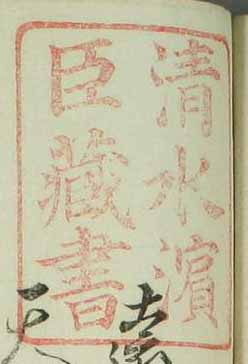 清水濵
臣藏書